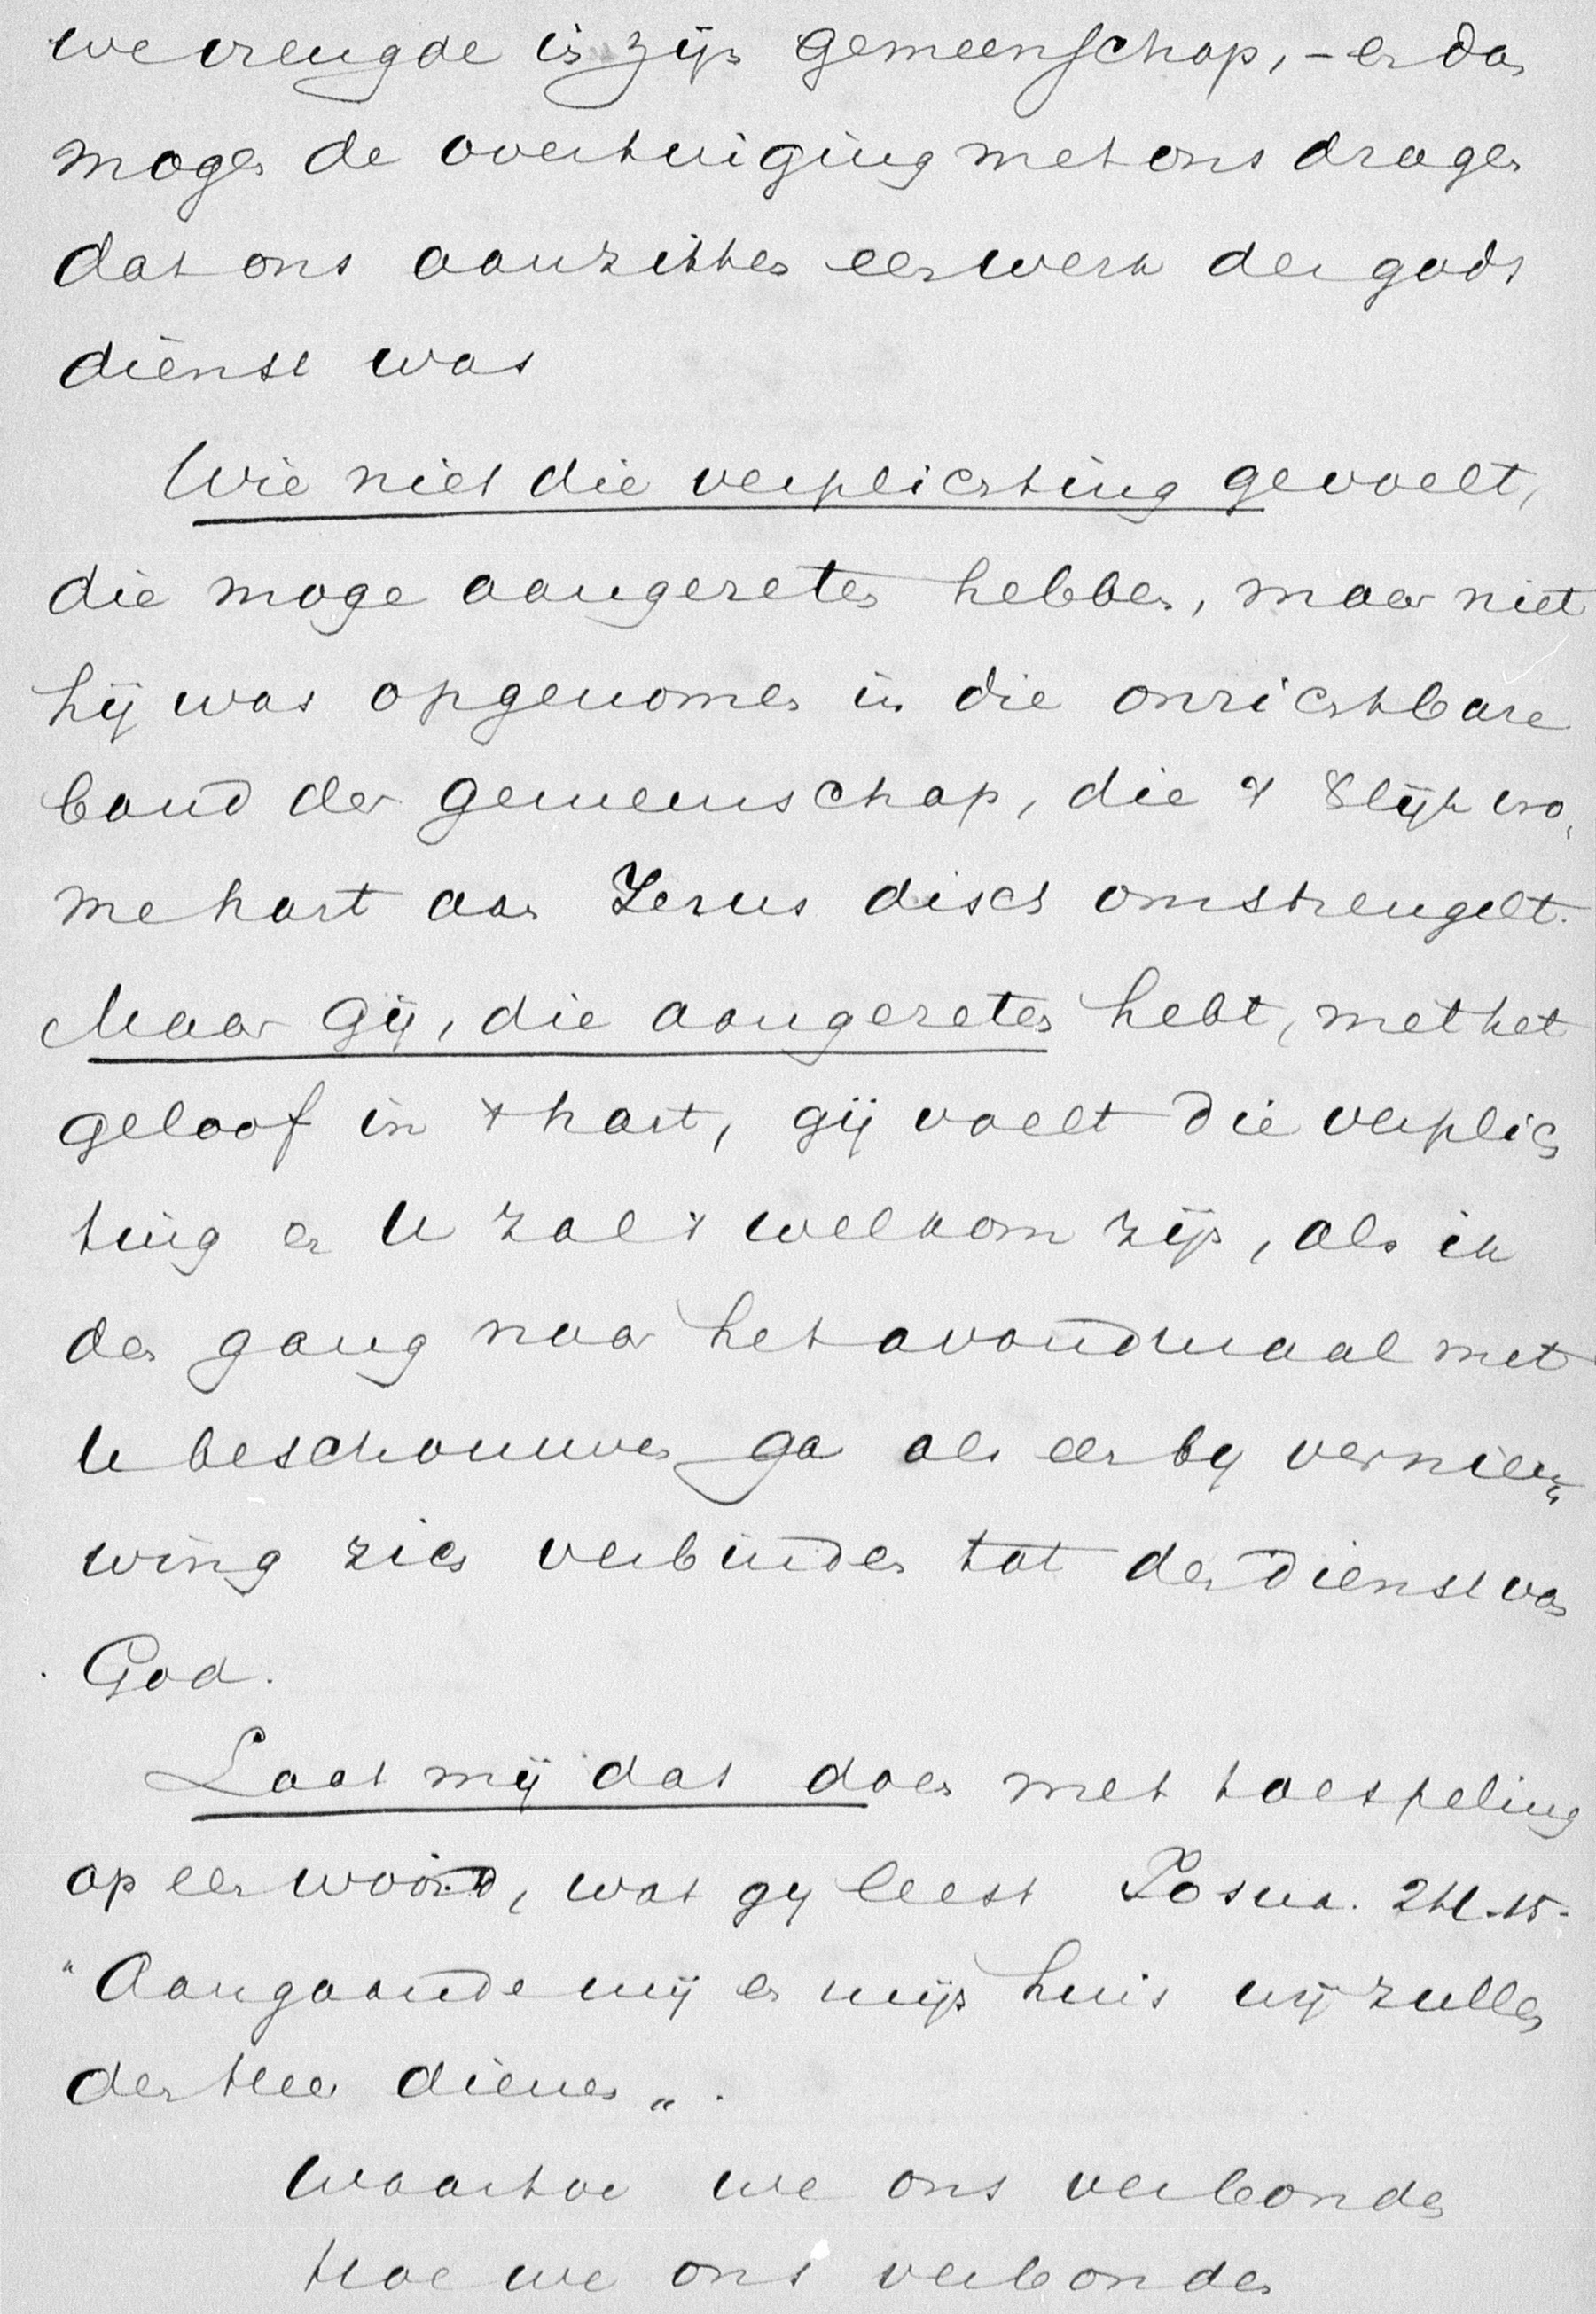 we vreugde is zijn gemeenschap, – en dan
mogen de overtuiging met ons dragen
dat ons aanzitten een werk der gods
dienst was
Wie niet die verplichting gevoelt,
die moge aangezeten hebben, maar niet
hij was opgenomen in die onzichtbare
band der gemeenschap, die 't vro,
me hart aan Jezus disch omstrengelt.
Maar gij, die aangezeten hebt, met het
geloof in 't hart, gij voelt die verplich
ting en U zal 't welkom zijn, als ik
den gang naar het avondmaal met
U beschouwen ga als een bij vernieu„
wing zich verbinden tot den dienst van
God.
Laat mij dat doen met toespeling
op een woord, wat gij leest Josua. 24.15.
"Aangaande mij en mijn huis wij zullen
den Heer dienen".
Waartoe we ons verbonden
Hoe we ons verbonden